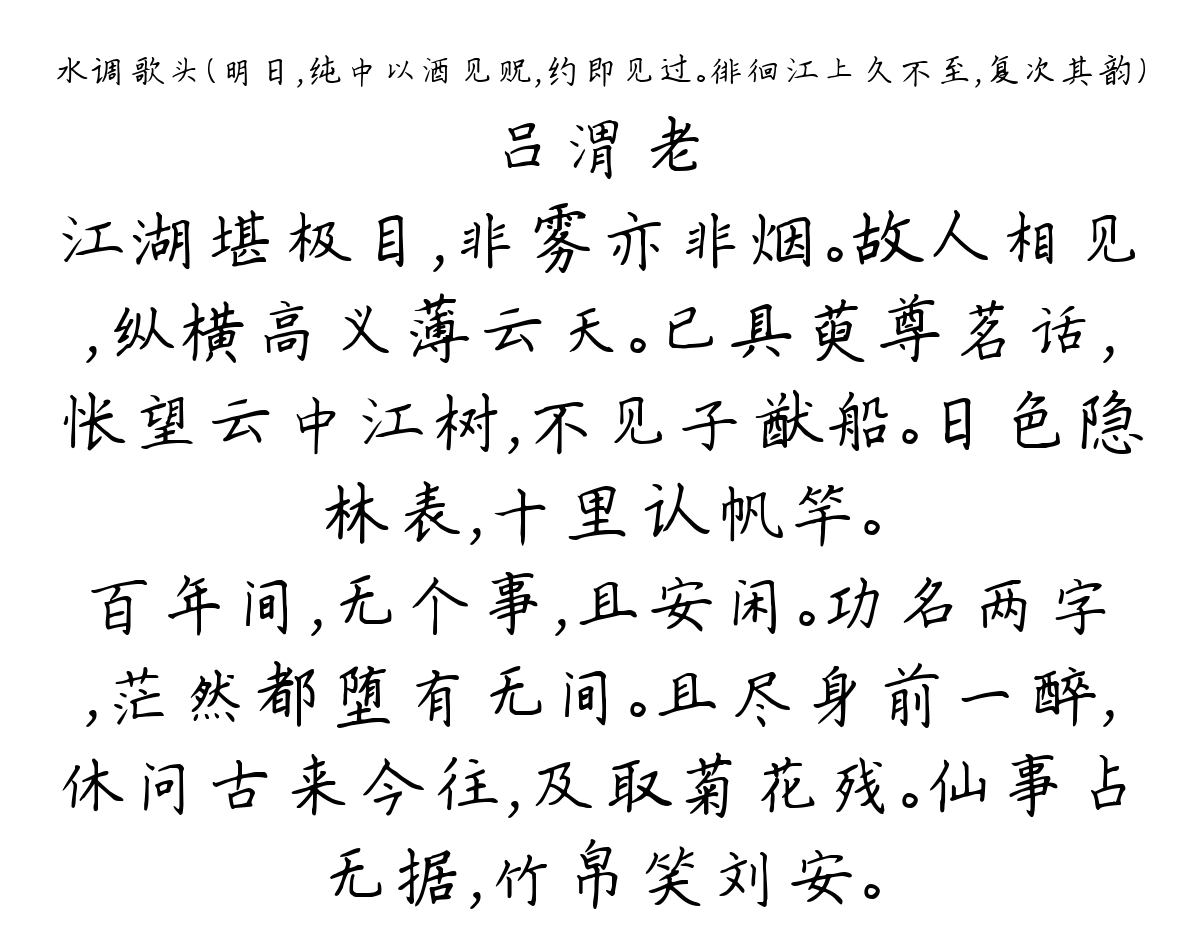 水调歌头(明日,纯中以酒见贶,约即见过。徘徊江上久不至,复次其韵)
吕渭老
江湖堪极目,非雾亦非烟。故人相见
,纵横高义薄云天。已具萸尊茗话,
怅望云中江树,不见子猷船。日色隐
林表,十里认帆竿。
百年间,无个事,且安闲。功名两字
,茫然都堕有无间。且尽身前一醉,
休问古来今往,及取菊花残。仙事占
无据,竹帛笑刘安。